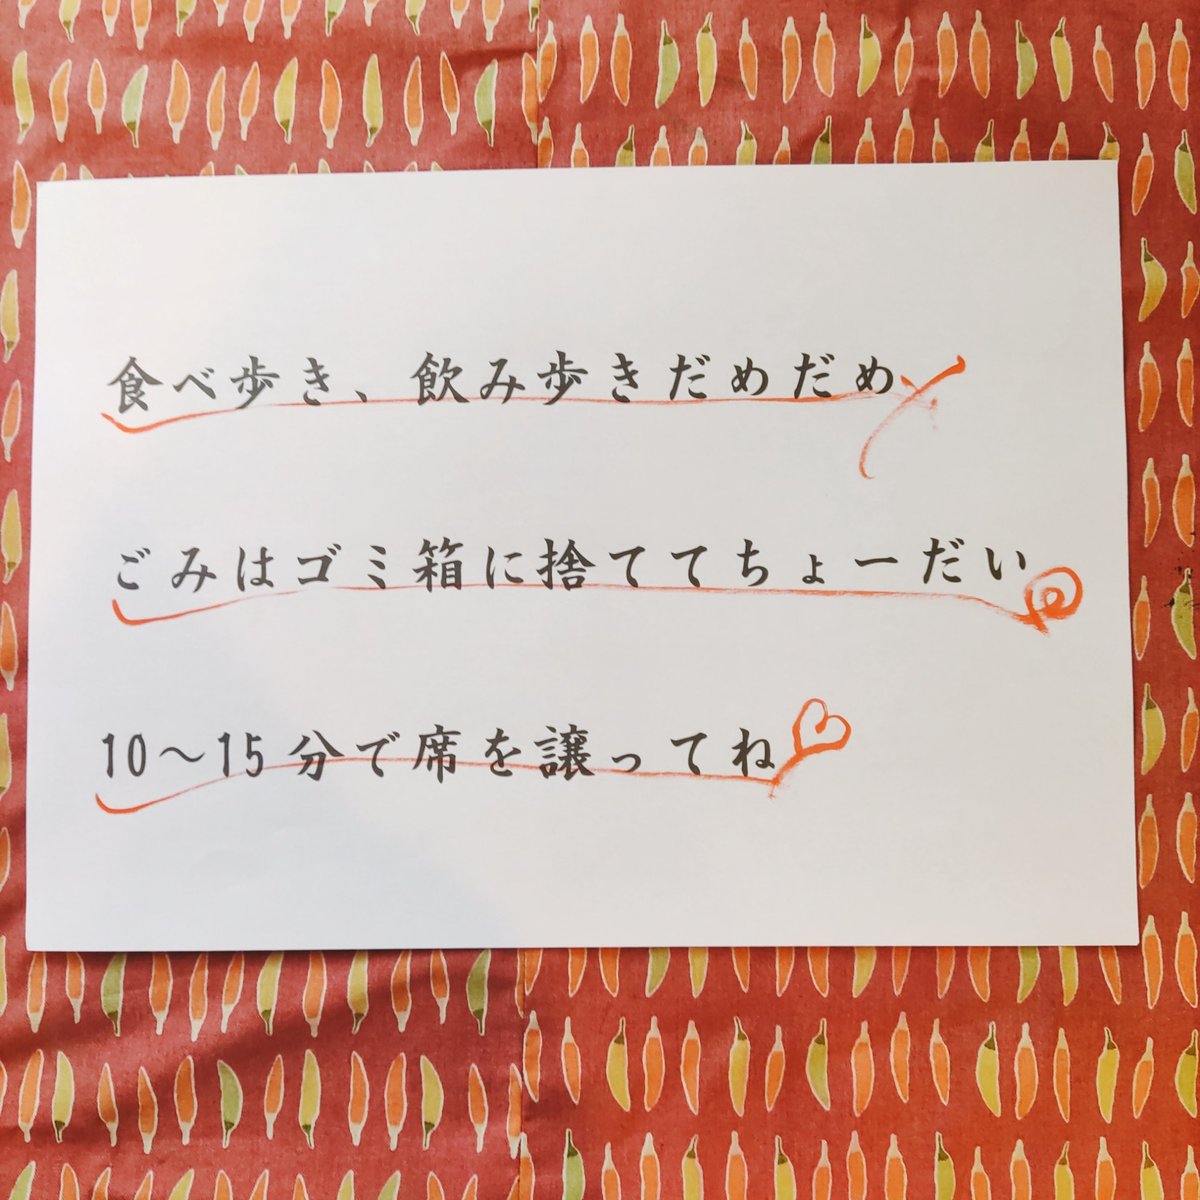 食べ歩き、飲み歩きだめだめ
ごみはゴミ箱に捨ててちょーだい
10〜15分で席を譲ってね